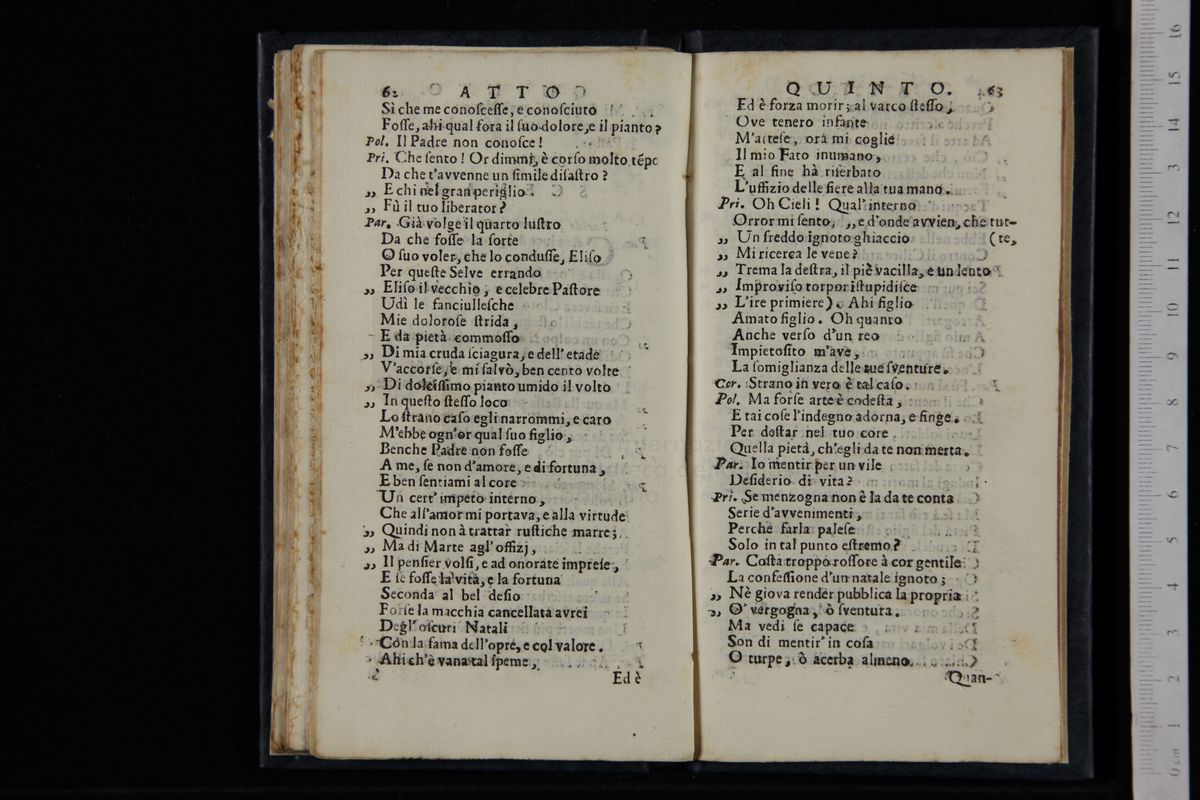 62 ATTO
Sì che me conoſceſſe, e conoſciuto
Foſſe, ahi qual fora il ſuo dolore, e il pianto?
Pol. Il Padre non conoſce!
Pri. Che ſento! Or dimmi, è corſo molto tẽpo
Da che t'avvenne un ſimile diſaſtro?
„ E chi nel gran periglio
„ Fù il tuo liberator?
Par. Già volge il quarto luſtro
Da che foſſe la ſorte
O ſuo voler, che lo conduſſe, Eliſo
Per queſte Selve errando
„ Eliſo il vecchio, e celebre Paſtore
Udì le fanciulleſche
Mie doloroſe ſtrida,
E da pietà commoſſo
„ Di mia cruda ſciagura, e dell' etade
V'accorſe, e mi ſalvò, ben cento volte
„ Di dolciſſimo pianto umido il volto
„ In queſto ſteſſo loco
Lo ſtrano caſo egli narrommi, e caro
M'ebbe ogn'or qual ſuo figlio,
Benche Padre non foſſe
A me, ſe non d'amore, e di fortuna,
E ben ſentiami al core
Un cert' impeto interno,
Che all'amor mi portava, e alla virtude
„ Quindi non à trattar ruſtiche marre;
„ Ma di Marte agl' offizj,
„ Il penſier volſi, e ad onorate impreſe,
E ſe foſſe la vita, e la fortuna
Seconda al bel deſio
Forſe la macchia cancellata avrei
Degl' oſcuri Natali
Con la fama dell'opre, e col valore.
Ahi ch'è vana tal ſpeme,
Ed è
QUINTO. 63
Ed è forza morir; al varco ſteſſo,
Ove tenero infante
M'atteſe, ora mi coglie
Il mio Fato inumano,
E al fine hà riſerbato
L'uffizio delle fiere alla tua mano.
Pri. Oh Cieli! Qual' interno
Orror mi ſento, „ e d'onde avvien, che tut-
„ Un freddo ignoto ghiaccio (te,
„ Mi ricerca le vene?
„ Trema la deſtra, il piè vacilla, e un lento
„ Improviſo torpor iſtupidiſce
„ L'ire primiere). Ahi figlio
Amato figlio. Oh quanto
Anche verſo d'un reo
Impietoſito m'ave,
La ſomiglianza delle tue ſventure.
Cor. Strano in vero è tal caſo.
Pol. Ma forſe arte è codeſta,
E tai coſe l'indegno adorna, e finge.
Per deſtar nel tuo core
Quella pietà, ch'egli da te non merta.
Par. Io mentir per un vile
Deſiderio di vita?
Pri. Se menzogna non è la da te conta
Serie d'avvenimenti,
Perchè farla paleſe
Solo in tal punto eſtremo?
Par. Coſta troppo roſſore à cor gentile
La confeſſione d'un natale ignoto;
„ Nè giova render pubblica la propria
„ O' vergogna, ò ſventura.
Ma vedi ſe capace
Son di mentir' in coſa
O turpe, ò acerba almeno,
Quan-